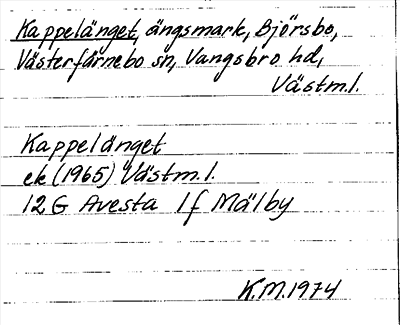 Kappelänget, ängsmark, Björsbo,
Västerfärnebo sn, Vangsbro hd,
Västm.l.
Kappelänget
ek (1965) Västm.l.
12G Avesta 1f Mälby
K.M.1974